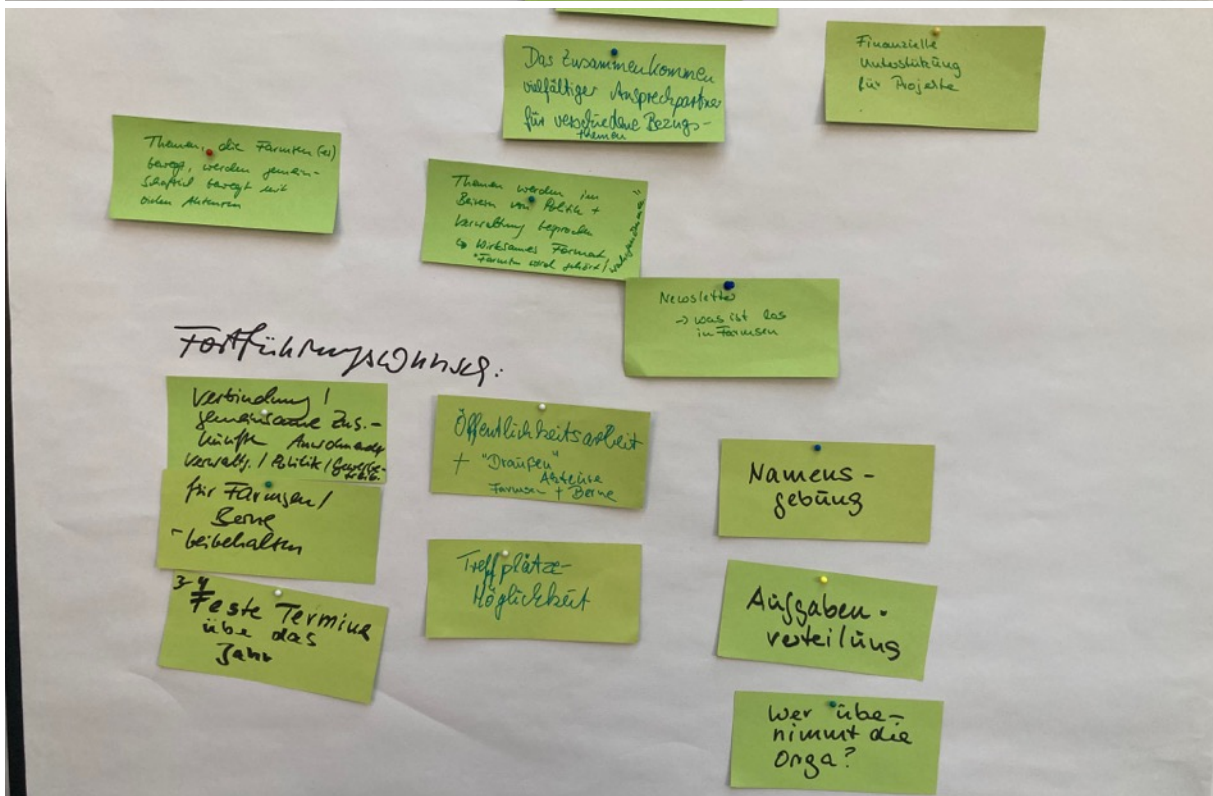 Das Zusammenkommen
vielfältiger Ansprechpartner
für verschiedene Bezugs-
themen
Finanzielle
Unterstützung
für Projekte
Themen, die Farmsen (er)
bewegt, werden gemein-
schaftlich bewegt mit
vielen Akteuren
Themen werden im
Beisein von Politik +
Verwaltung besprochen
↳ Wirksames Format,
"Farmsen wird gehört/
wahrgenommen"
Newsletter
-> was ist das
in Farmsen
Fortführungswunsch:
Verbindung /
gemeinsame Zus.-
künfte Anwohnende
Verwaltg. / Politik / Gewerbe-
für Farmsen /
Berne
- beibehalten
3-4
Feste Termine
über das
Jahr
Öffentlichkeitsarbeit
+ "Draußen"
Akteure
Farmsen + Berne
Treffplätze-
Möglichkeit
Namens-
gebung
Aufgaben-
verteilung
Wer übe-
nimmt die
Orga?